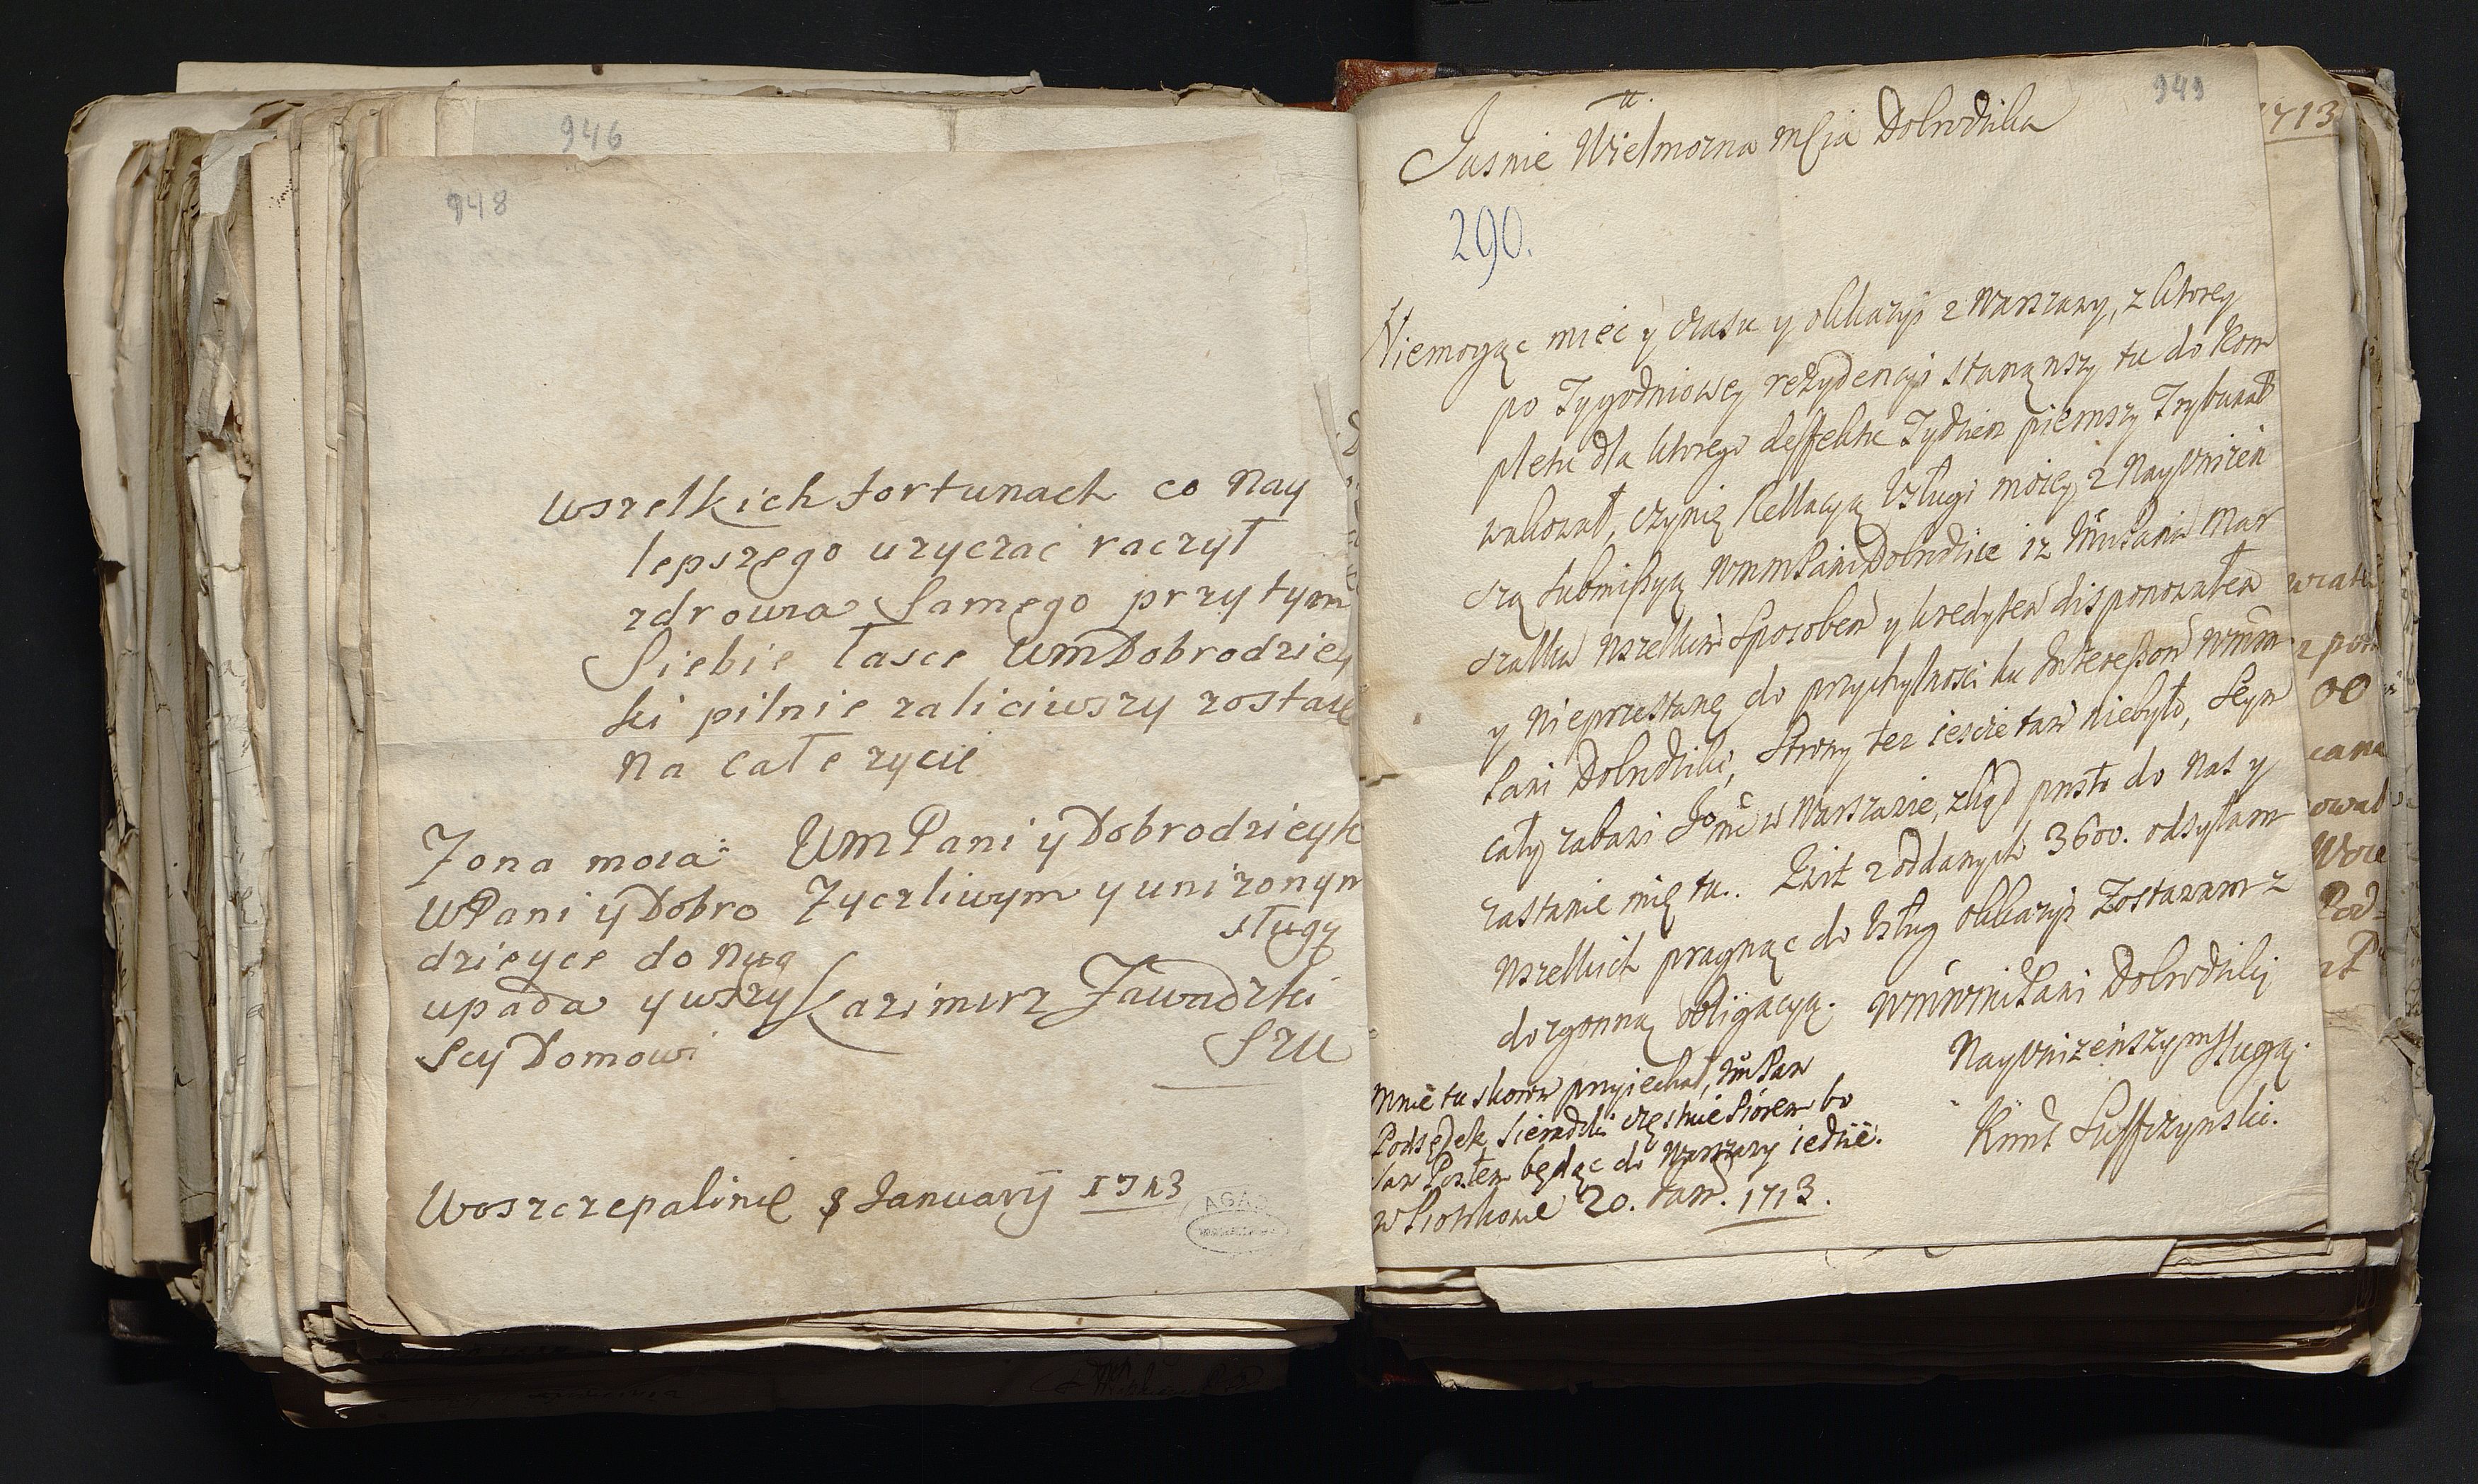 946
948
wszelkich fortunach co Nay
lepszego uzyczac raczył
zdrowia Samego przytym
Siebie łasce UmDobrodziey
ki pilnie zaliciwszy zostaie
Na całe zycie
Zona moia UmPani y Dobrodzieyk
WPani y Dobro Zyczliwym y unizonym
sługą
dzieyce do Nug
upada y wszy Kazimierz Zawadzki
Scy Domowi
SZU
Woszczepalinie 8 January 1713
949
1713
Jasnie Wielmozna mscia Dobrodzika
290.
Niemogąc miec y czasu y okkazyi z Warszawy, z ktorey
po Tygodniowey rezydencyi stanąwszy tu do Kom
pletu dla ktorego deffektu Tydzien pierwszy Trybunał
wakował, czynię Rellacyą Usługi moiey z Nayunizen
szą submissyą WmmPani Dobrodzice iz Pana Mar
szałka wszelkim Sposobem y kredytem disponowałem
y nieprzestanę do przychylnosci ku Interessom Wmm
Pani Dobrodziki, Strony tez ieszcze tam niebyło, Seym
cały zabawi w Warszawie, zkąd prosto do nas y
zastanie mię tu. Kwit z oddanych 3600. odsyłam
wszelkich pragnąc do Usług okkazyi Zostawam z
dozgonną obligacyą. Pani Dobrodziki
Nayunizenszym Sługą.
Mnie tu skorom przyiechał, Pan
Podsędek Sieradzki
Posłem będąc do Warszawy iedzie.
w Piotrkowie 20. Jan. 1713.
Suffczynski.